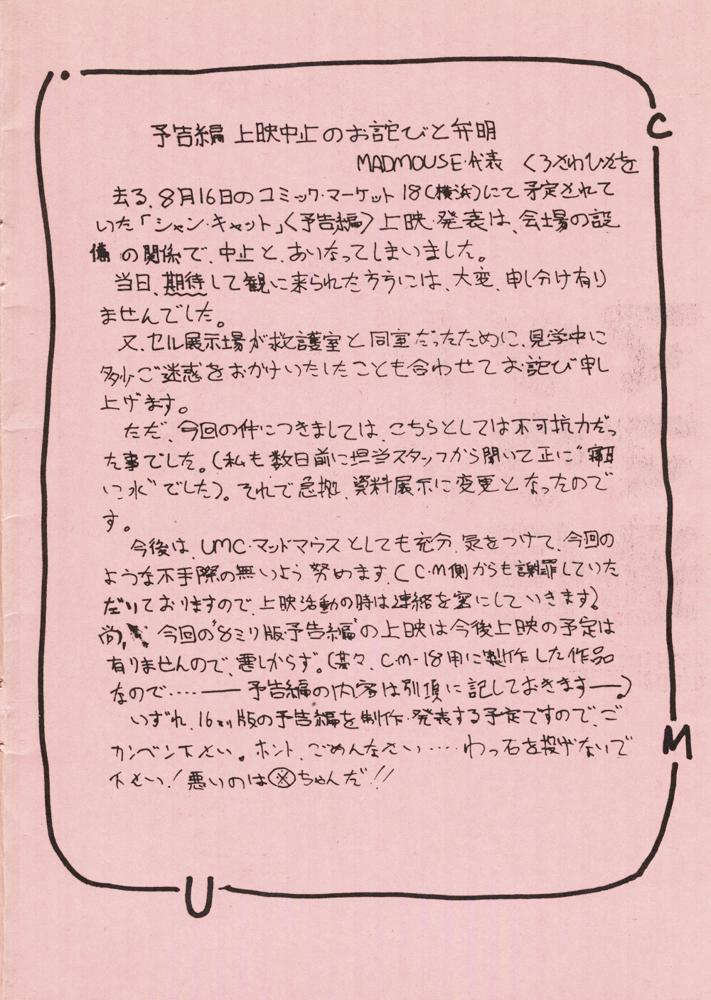 予告編 上映中止のお詫びと弁明
MADMOUSE・代表 くろさわひでを
去る、8月16日のコミック・マーケット18(横浜)にて予定されて
いた「シャン・キャット」〈予告編〉上映・発表は、会場の設
備の関係で、中止と、あいなってしまいました。
当日、期待して観に来られた方々には、大変、申し分け有り
ませんでした。
又、セル展示場が救護室と同室だったために、見学中に
多少ご迷惑をおかけいたしたことも合わせてお詫び申し
上げます。
ただ、今回の件につきましては、こちらとしては不可抗力だっ
た事でした。(私も数日前に担当スタッフから聞いて正に"寝耳
に水"でした)。それで急拠、資料展示に変更となったので
す。
今後は、UMC・マッドマウスとしても充分、気をつけて、今回の
ような不手際の無いよう努めます。(C・M側からも謝罪していた
だいておりますので、上映活動の時は連絡を密にしていきます)
尚、今回の"8ミリ版予告編"の上映は今後上映の予定は
有りませんので、悪しからず。(某々、CM-18用に製作した作品
なので‥‥‥―― 予告編の内容は別項に記しておきます――)
いずれ、16ミリ版の予告編を制作・発表する予定ですので、ご
カンベン下さい。ホント、ごめんなさい‥‥‥わっ石を投げないで
下さい!悪いのは㊍ちゃんだ!!
C
M
U